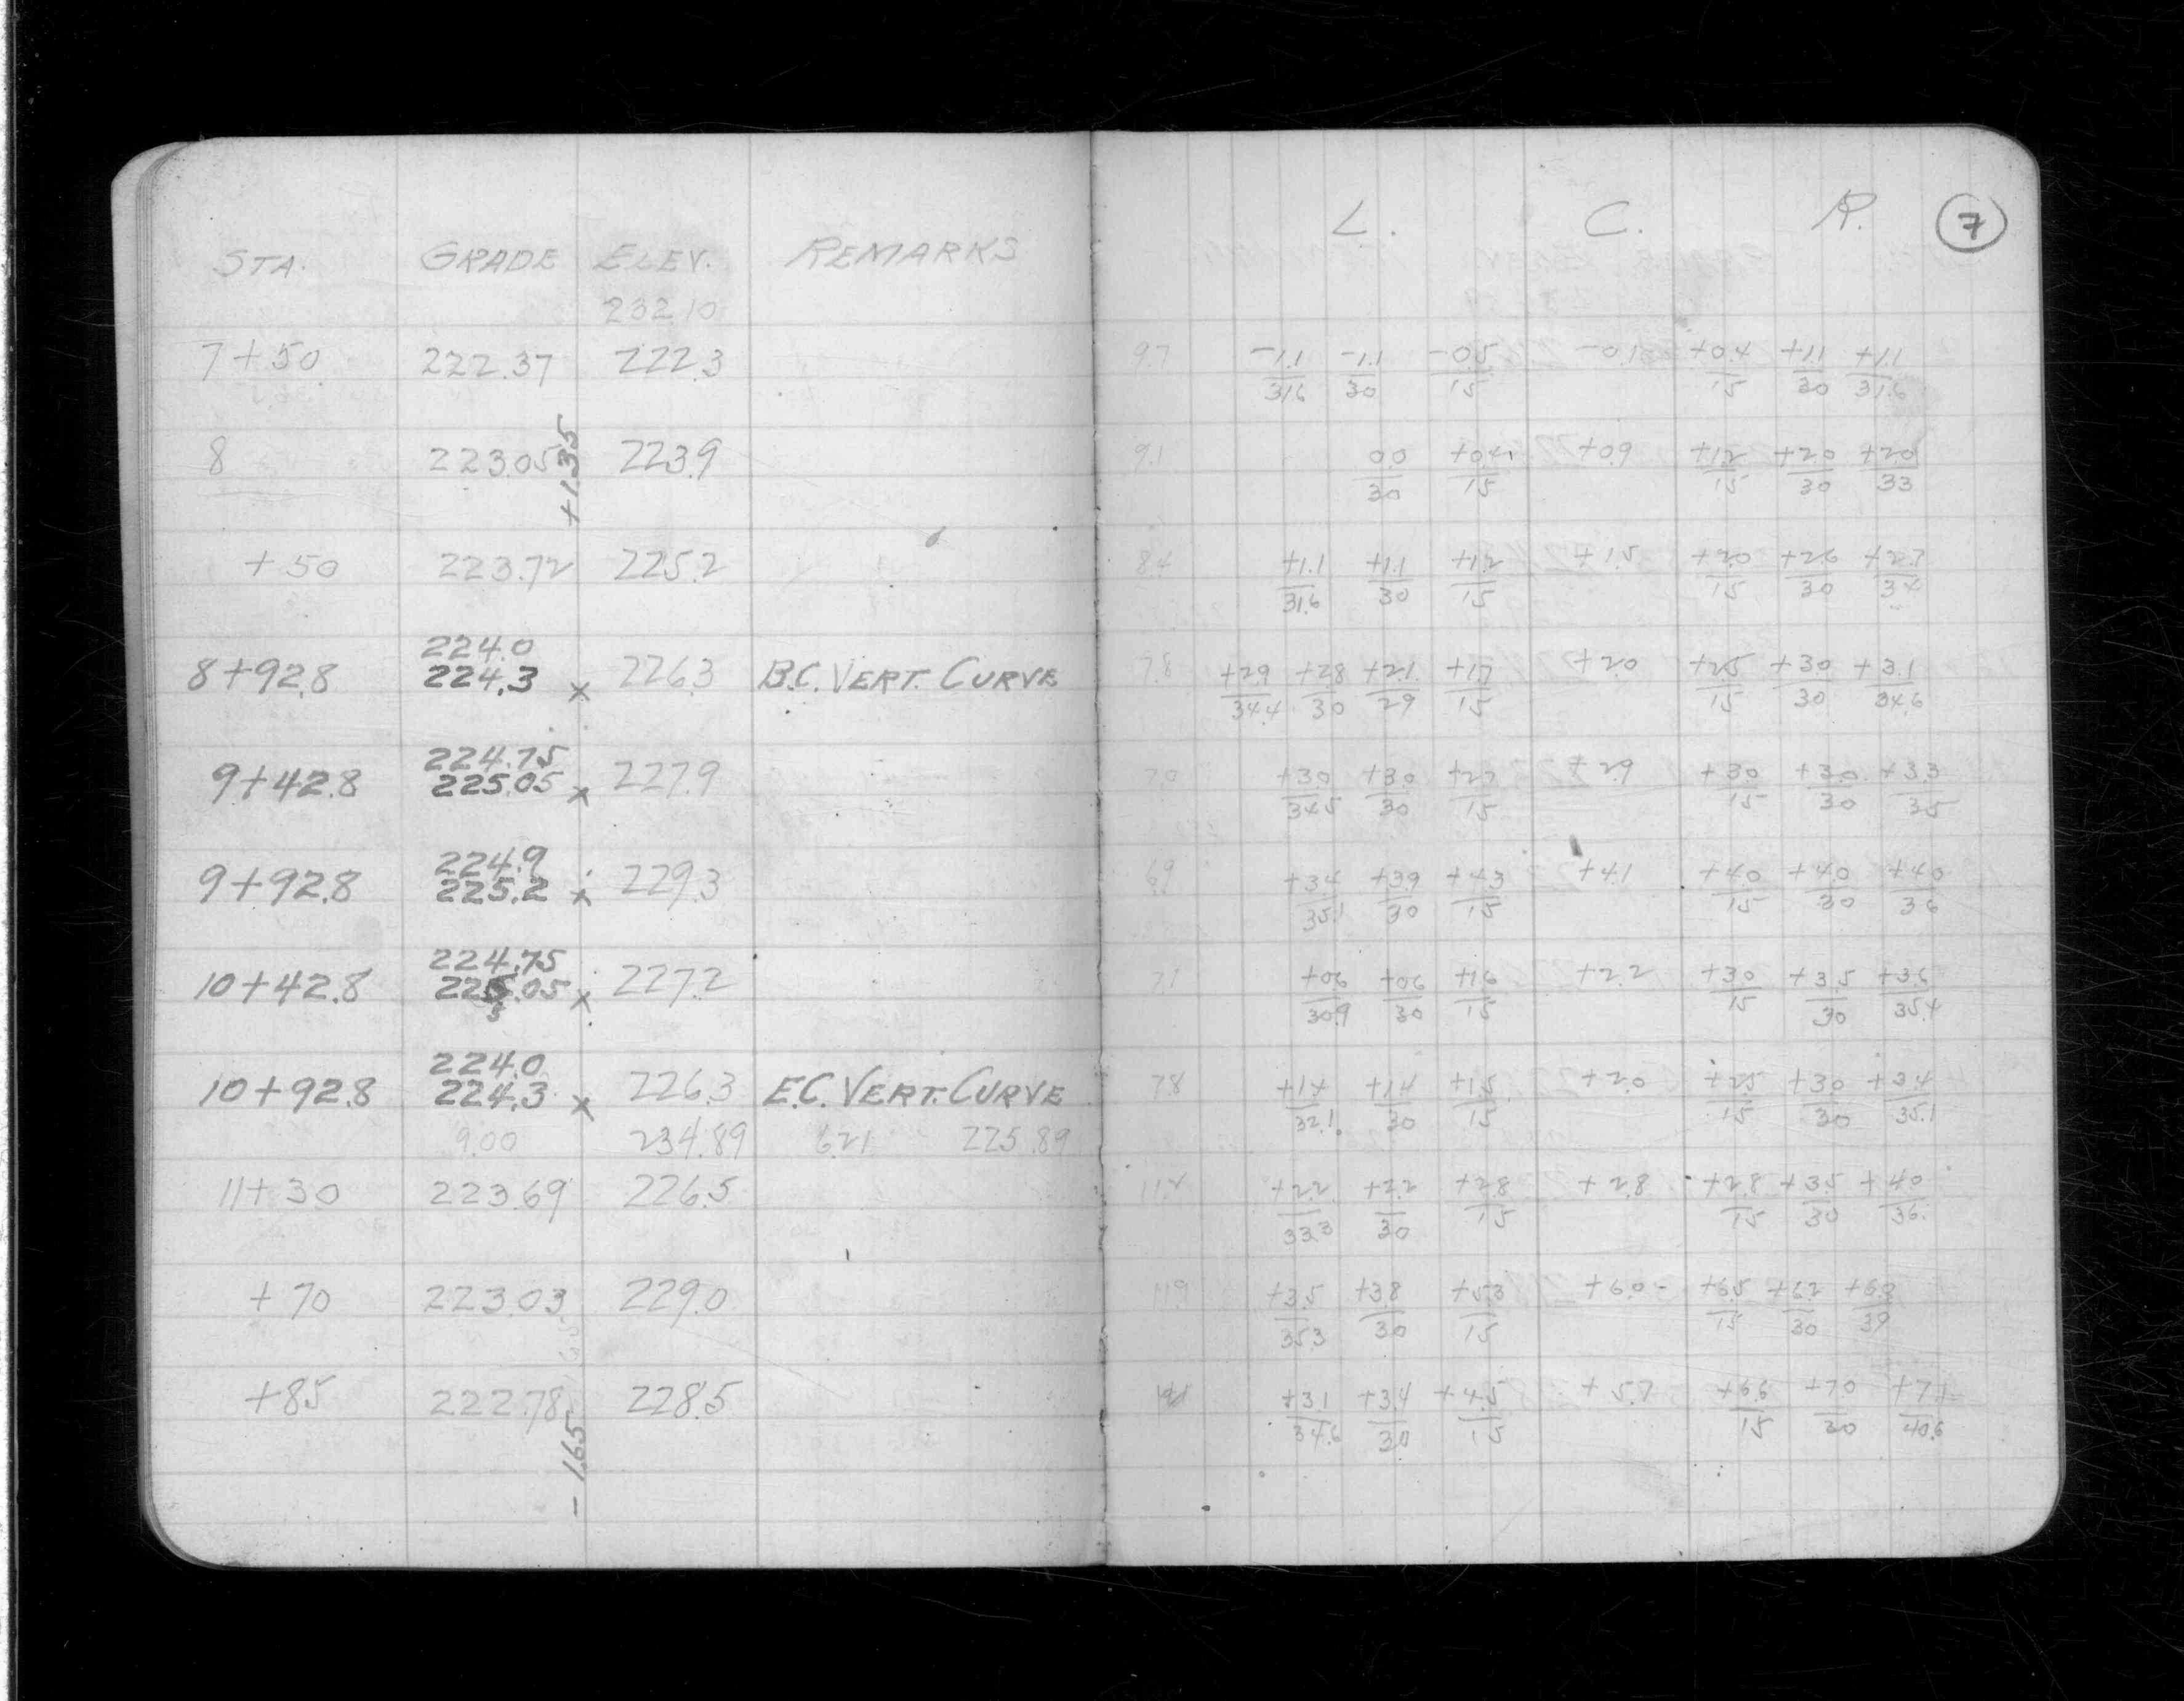 L. C. R. 7
STA. GRADE ELEV. REMARKS
232.10
7+50 222.37 222.3 9.7 -1.1/31.6 -1.1/30 -0.5/15 -0.1 +0.4/15 +1.1/30 +1.1/31.6
+1.35
8 223.05 223.9 9.1 0.0/30 +0.4/15 +0.9 +1.2/15 +2.0/30 +2.0/33
+50 223.72 225.2 8.4 +1.1/31.6 +1.1/30 +1.2/15 +1.5 +2.0/15 +2.6/30 +2.7/34
224.0
8+92.8 224.3 x 226.3 B.C. VERT. CURVE 7.8 +2.9/34.4 +2.8/30 +2.1/29 +1.7/15 +2.0 +2.5/15 +3.0/30 +3.1/34.6
224.75
9+42.8 225.05 x 227.9 7.0 +3.0/34.5 +3.0/30 +2.7/15 +2.9 +3.0/15 +3.0/30 +3.3/35
224.9
9+92.8 225.2 x 229.3 6.9 +3.4/35.1 +3.9/30 +4.3/15 +4.1 +4.0/15 +4.0/30 +4.0/36
224.75
10+42.8 225.05 x 227.2 7.1 +0.6/30.9 +0.6/30 +1.6/15 +2.2 +3.0/15 +3.5/30 +3.6/35.4
224.0
10+92.8 224.3 x 226.3 E.C. VERT. CURVE 7.8 +1.4/32.1 +1.4/30 +1.5/15 +2.0 +2.5/15 +3.0/30 +3.4/35.1
9.00 234.89 6.21 225.89
11+30 223.69 226.5 11.2 +2.2/33.3 +2.2/30 +2.8/15 +2.8 +2.8/15 +3.5/30 +4.0/36.
+70 223.03 229.0 11.9 +3.5/35.3 +3.8/30 +5.3/15 +6.0 +6.5/15 +6.2/30 /39
+85 222.78 228.5 +3.1/34.6 +3.4/30 +4.5/15 +5.7 +6.6/15 +7.0/30 +7.1/40.6
-1.65